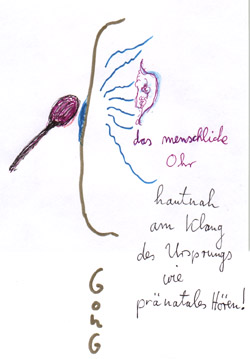 das menschliche
Ohr
hautnah
am Klang
des Ursprungs
wie
pränatales Hören!
GonG